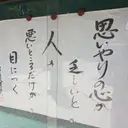 思いやりの心が
乏しいと
人の
悪いところだけが
目につく